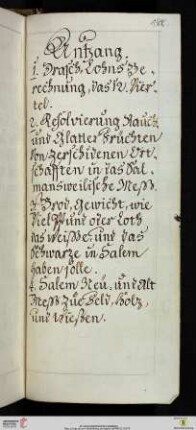 Anhang
1. Drasch, Lohns Be,,
rechnung, das 12. Vier,,
tel.
2. Resolvierung Rauch
und Glatter Früchten
von Verschidenen Ort,,
schafften in das Sal,,
mansweilische Mess.
3. Brod, Gewicht, wie
viel Pfund oder Loth
das weisse, und das
schwarze in Salem
haben solle.
4. Salem Neu, und Alt
Mess zue Feld, Holz,
und Wießen.